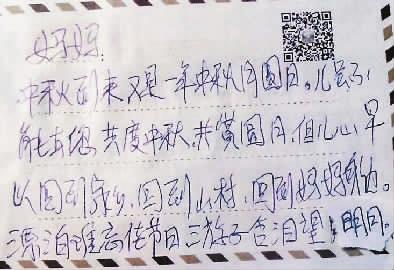 妈妈:
中秋到来又是一年中秋月圆日。儿虽不
能去您共度中秋,共赏圆月,但儿心早
以回到家乡,回到小村,回到妈妈身边。
漂泊 佳节日 游子含泪望明月。